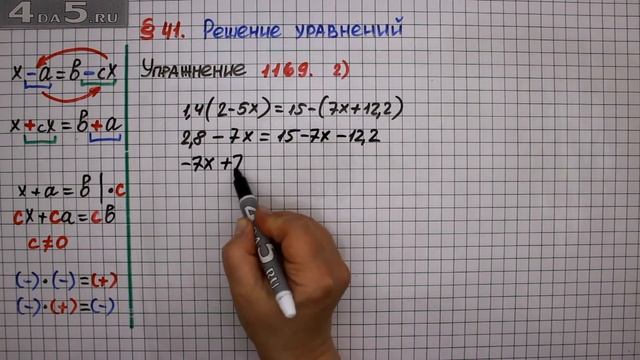 4DA5.RU
§ 41. Решение уравнений
x-a=b-cx
x+cx=b+a
x+a=b|·c
cx+ca=cb
c≠0
(-)·(-)=(+)
(-)·(+)=(-)
Упражнение 1169. 2)
1,4(2-5x)=15-(7x+12,2)
2,8-7x=15-7x-12,2
-7x+7
4DA5.RU